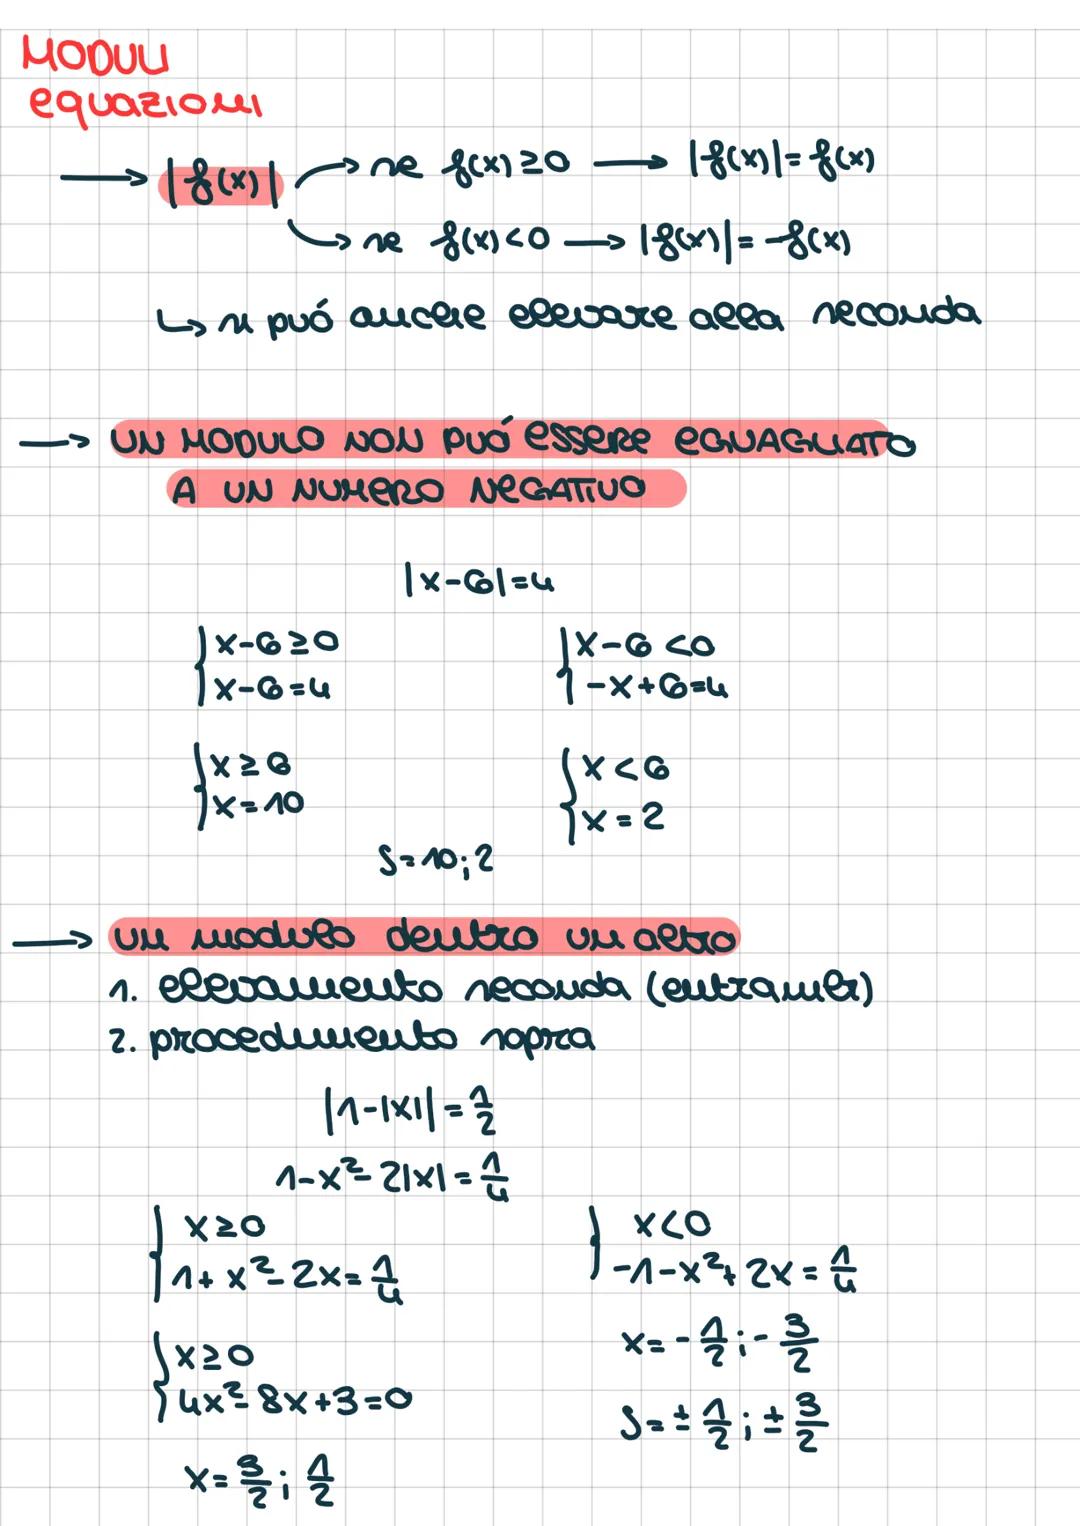 MODULI
equazioni
→ |f(x)| → se f(x) ≥ 0 → |f(x)| = f(x)
→ se f(x) < 0 → |f(x)| = -f(x)
↳ si può anche elevare alla seconda
→ UN MODULO NON PUÓ ESSERE EGUAGLIATO
A UN NUMERO NEGATIVO
|x-6|=4
{ x-6 ≥ 0 { x-6 < 0
{ x-6 = 4 { -x+6=4
{ x ≥ 6 { x < 6
{ x = 10 { x = 2
S = 10; 2
→ un modulo dentro un altro
1. elevamento seconda (entrambi)
2. procedimento sopra
|1-|x|| = 1/2
1-x²-2|x| = 1/4
{ x ≥ 0 { x < 0
{ 1+x²-2x = 1/4 { -1-x²+2x = 1/4
{ x ≥ 0 x = -1/2; -3/2
{ 4x²-8x+3=0 S = ±1/2; ±3/2
x = 3/2; 1/2